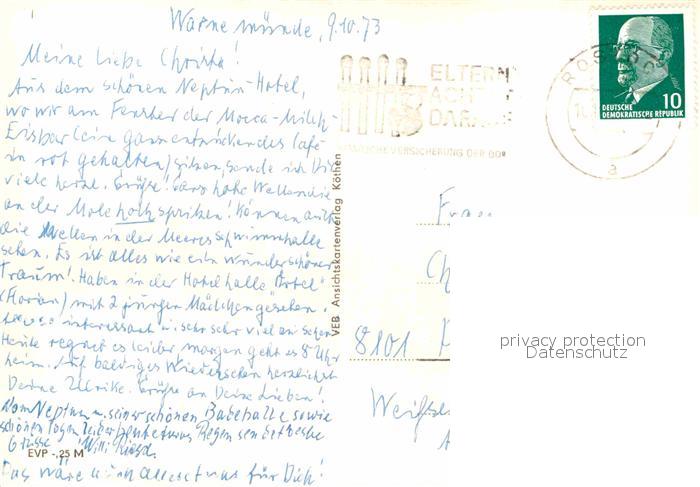 Warnemünde, 9.10.73
Meine liebe Christa!
Aus dem schönen Neptun-Hotel,
wo wir am Fenster der Mocca-Milch-
Eisbar (ein ganz entzückendes Café
in rot gehalten) sitzen, sende ich Dir
viele herzl. Grüße! Ganz hohe Wellen die
an der Mole hoch spritzen! Können auch
die Wellen in der Meeresschwimmhalle
sehen. Es ist alles wie ein wunderschöner
Traum! Haben in der Hotelhalle
(Florian) mit 2 jungen Mädchen gesehen.
interessant u. sehr sehr viel an sehen
Heute regnet es leider morgen geht es 8 Uhr
heim. Auf baldiges Wiedersehen herzlichst
Deine Ulrike. Grüße an Deine Lieben!
Vom Neptun u. seiner schönen Badehalle sowie
schönen Tagen leider heute etwas Regen sendet beste
Grüsse Willi
Das wäre alles etwas für Dich!
EVP -,25 M
VEB Ansichtskartenverlag Köthen
ELTERN
ACH
DARA
VERSICHERUNG DER DDR
ROSTOC
a
10
DEUTSCHE
DEMOKRATISCHE REPUBLIK
Frau
Ch
8101
privacy protection
Datenschutz